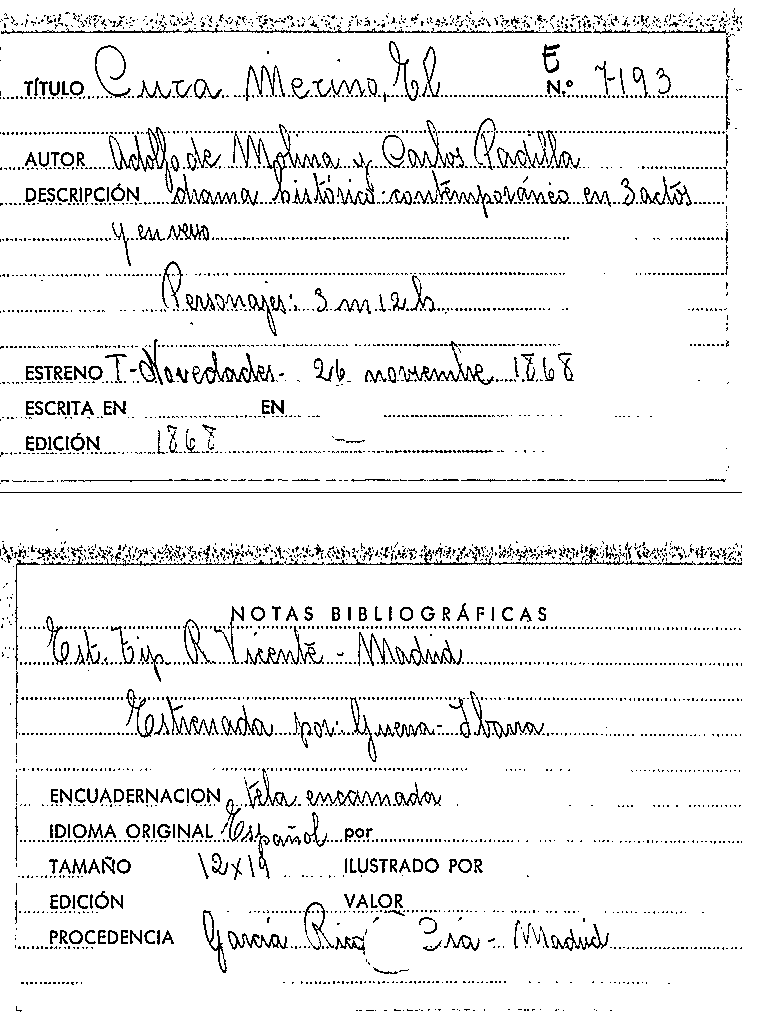 E
TÍTULO Cura Merino, El N.º 7193
AUTOR Adolfo de Molina y Carlos Padilla
DESCRIPCIÓN drama histórico-contemporáneo en 3 actos
y en verso
Personajes: 3 m 12 h.
ESTRENO T-Novedades- 26 noviembre 1868
ESCRITA EN EN
EDICIÓN 1868 —
NOTAS BIBLIOGRÁFICAS
Est. Tip R Vicente - Madrid
Estrenada por: Guerra-Ibarra
ENCUADERNACION tela encarnada
IDIOMA ORIGINAL Español por
TAMAÑO 12x19 ILUSTRADO POR
EDICIÓN VALOR
PROCEDENCIA García Rico Cía - Madrid